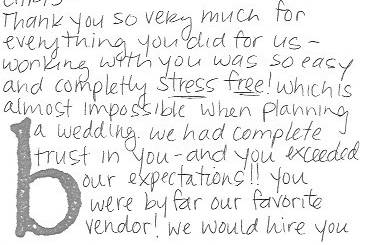 Thank you so very much for
everything you did for us -
working with you was so easy
and completly stress free! which is
almost impossible when planning
a wedding. we had complete
trust in you - and you exceeded
b
our expectations!! you
were by far our favorite
vendor! we would hire you